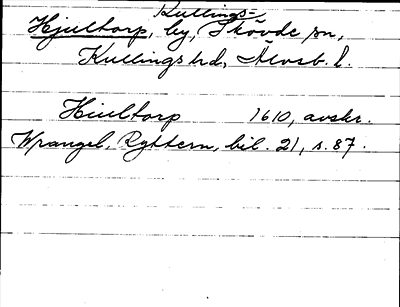 Kullings-
Hjultorp, by, Skövde sn,
Kullings hd, Älvsb. l.
Hiultorp 1610, avskr.
Wrangel, Ryttern, bil. 21, s. 87.